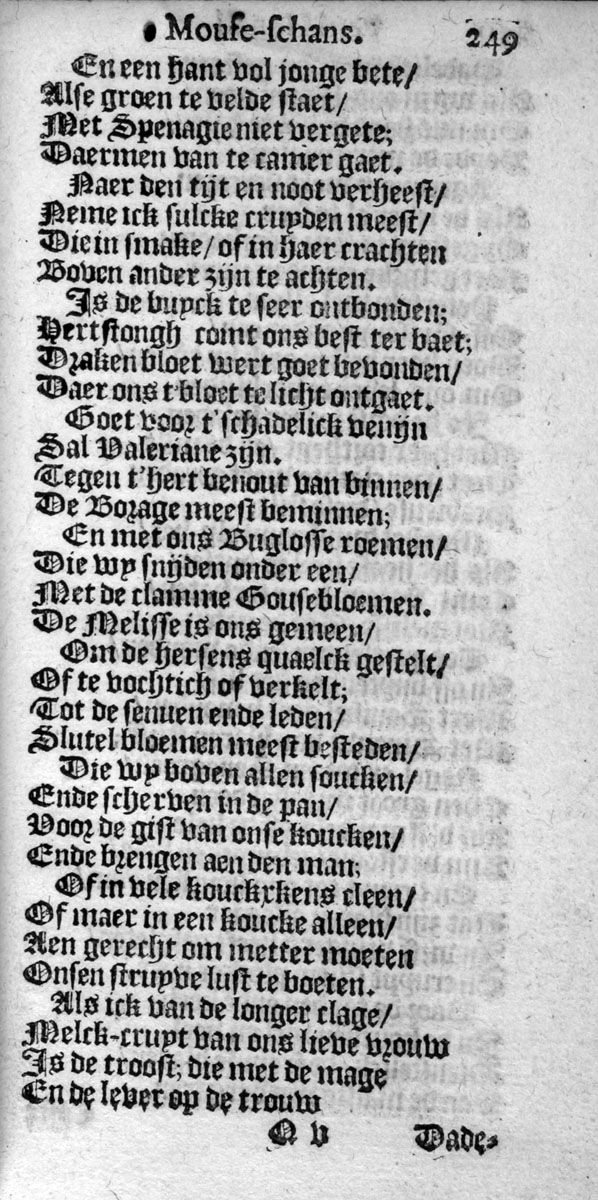 Mouse-schans. 249
En een hant vol jonge bete/
Alse groen te velde staet/
Met Spenagie niet vergete;
Daermen van te camer gaet.
Naer den tijt en noot verheest/
Neme ick sulcke cruyden meest/
Die in smake/ of in haer crachten
Boven ander zijn te achten.
Is de buyck te seer ontbonden;
Hertstongh comt ons best ter baet;
Draken bloet wert goet bevonden/
Daer ons t'bloet te licht ontgaet.
Goet voor t'schadelick venijn
Sal Valeriane zijn.
Tegen t'hert benout van binnen/
De Borage meest beminnen;
En met ons Buglosse roemen/
Die wy snijden onder een/
Met de clamme Gousebloemen.
De Melisse is ons gemeen/
Om de hersens quaelck gestelt/
Of te vochtich of verkelt;
Tot de senuen ende leden/
Slutel bloemen meest besteden/
Die wy boven allen soucken/
Ende scherven in de pan/
Voor de gist van onse koucken/
Ende brengen aen den man;
Of in vele kouckxkens cleen/
Of maer in een koucke alleen/
Aen gerecht om metter moeten
Onsen struyve lust te boeten.
Als ick van de longer clage/
Melck-cruyt van ons lieve vrouw
Is de troost; die met de mage
En de lever op de trouw
Q v Dade-